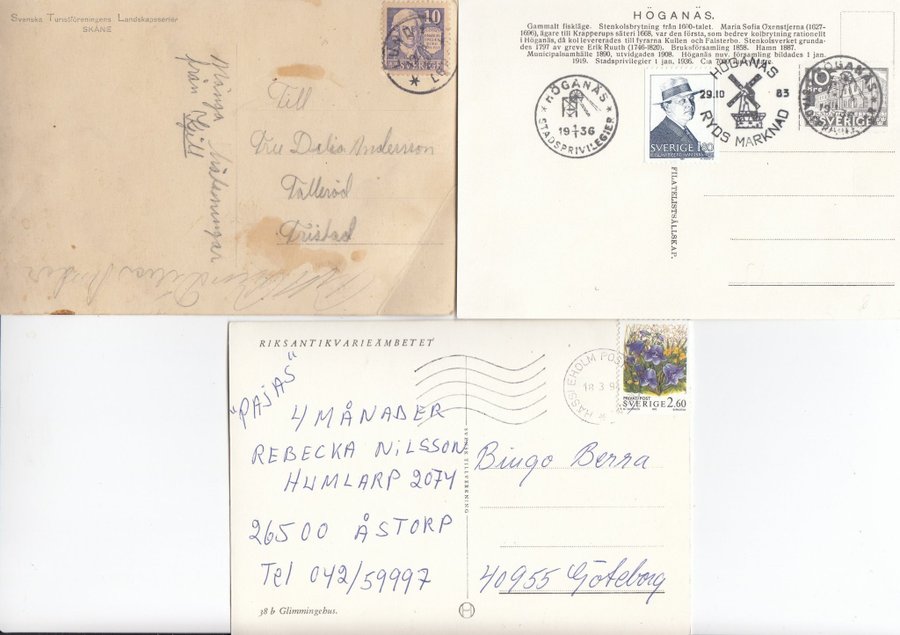 Svenska Turistföreningens Landskapsserier
SKÅNE
10
SVERIGE
Till
Delia Andersson
Tålleröd
Många hälsningar
från Kjell
HÖGANÄS.
Gammalt fiskläge. Stenkolsbrytning från 1600-talet. Maria Sofia Oxenstjerna (1627-
1696), ägare till Krapperups säteri 1668, var den första, som bedrev kolbrytning rationellt
i Höganäs, då kol levererades till fyrarna Kullen och Falsterbo. Stenkolsverket grunda-
des 1797 av greve Erik Ruuth (1746-1820). Bruksförsamling 1858. Hamn 1887.
Municipalsamhälle 1890, utvidgades 1908. Höganäs nuv. församling bildades 1 jan.
1919. Stadsprivilegier 1 jan. 1936. C:a
HÖGANÄS
1936
STADSPRIVILEGIER
SVERIGE 1.80
HÖGANÄS
29.10 83
RYDS MARKNAD
HÖGANÄS
10
SVERIGE
FILATELISTSÄLLSKAP.
RIKSANTIKVARIEÄMBETET
"PAJAS"
4 MÅNADER
REBECKA NILSSON
HUMLARP 2074
26500 ÅSTORP
Tel 042/59997
38 b Glimmingehus.
SVENSK TILLVERKNING
HÄSSLEHOLM POST
18.3.9
PRIVATPOST
SVERIGE 2.60
Bingo Berra
40955 Göteborg